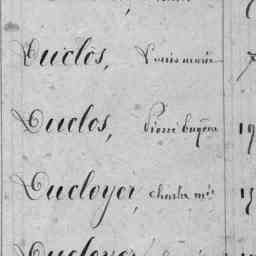 Duclos, Louis marie 7
Duclos, Pierre Eugène 19
Ducloyer, Charles
Ducloyer